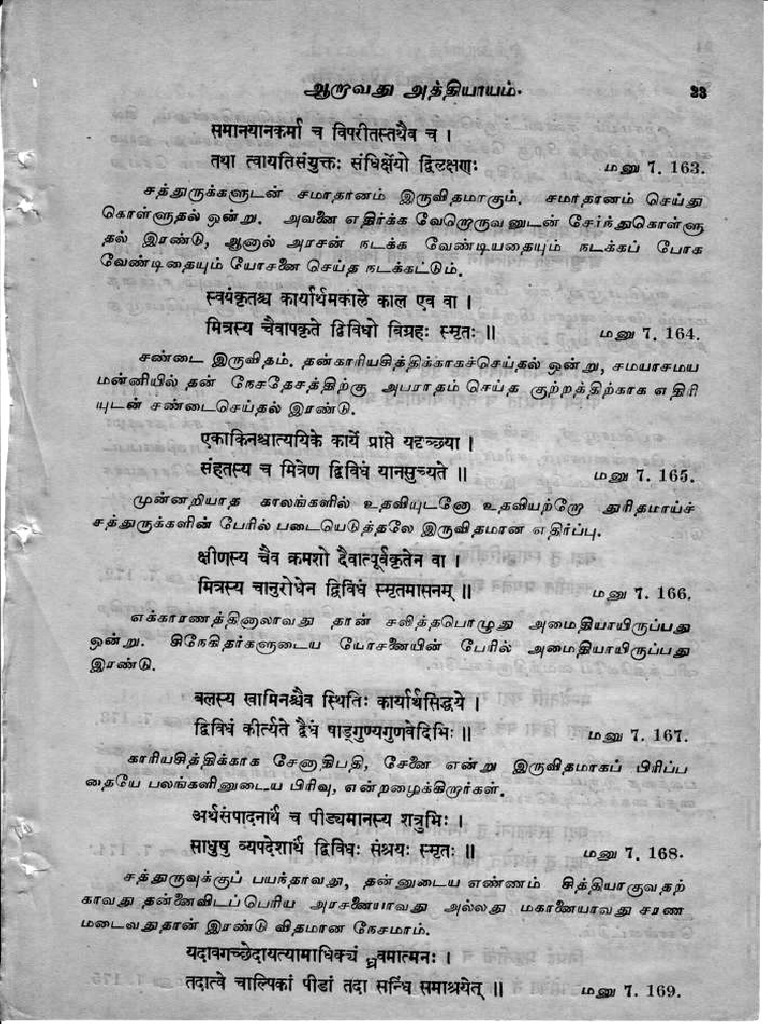 ஆறாவது அத்தியாயம். 23
समानयानकर्मा च विपरीतस्तथैव च ।
तथा त्वायतिसंयुक्तः संधिर्ज्ञेयो द्विलक्षणः மனு 7. 163.
சத்துருக்களுடன் சமாதானம் இருவிதமாகும். சமாதானம் செய்து
கொள்ளுதல் ஒன்று. அவனை எதிர்க்க வேறொருவனுடன் சேர்ந்துகொள்ளு
தல் இரண்டு, ஆனால் அரசன் நடக்க வேண்டியதையும் நடக்கப் போக
வேண்டிதையும் யோசனை செய்த நடக்கட்டும்.
स्वयंकृतश्च कार्यार्थमकाले काल एव वा ।
मित्रस्य चैवापकृते द्विविधो विग्रहः स्मृतः ॥ மனு 7. 164.
சண்டை இருவிதம். தன்காரியசித்திக்காகச்செய்தல் ஒன்று, சமயாசமய
மன்னியில் தன் நேசதேசத்திற்கு அபராதம் செய்த குற்றத்திற்காக எதிரி
யுடன் சண்டைசெய்தல் இரண்டு.
एकाकिनश्चात्ययिके कार्ये प्राप्ते यदृच्छया ।
संहतस्य च मित्रेण द्विविधं यानमुच्यते ॥ மனு 7. 165.
முன்னறியாத காலங்களில் உதவியுடனோ உதவியற்றோ துரிதமாய்ச்
சத்துருக்களின் பேரில் படையெடுத்தலே இருவிதமான எதிர்ப்பு.
क्षीणस्य चैव क्रमशो दैवात्पूर्वकृतेन वा ।
मित्रस्य चानुरोधेन द्विविधं स्मृतमासनम् ॥ மனு 7. 166.
எக்காரணத்தினாலாவது தான் சலித்தபொழுது அமைதியாயிருப்பது
ஒன்று. சிநேகிதர்களுடைய யோசனையின் பேரில் அமைதியாயிருப்பது
இரண்டு.
बलस्य स्वामिनश्चैव स्थितिः कार्यार्थसिद्धये ।
द्विविधं कीर्त्यते द्वैधं षाड्गुण्यगुणवेदिभिः ॥ மனு 7. 167.
காரியசித்திக்காக சேனாதிபதி, சேனை என்று இருவிதமாகப் பிரிப்ப
தையே பலங்களினுடைய பிரிவு, என்றழைக்கிறார்கள்.
अर्थसंपादनार्थं च पीड्यमानस्य शत्रुभिः ।
साधुषु व्यपदेशार्थं द्विविधः संश्रयः स्मृतः ॥ மனு 7. 168.
சத்துருவுக்குப் பயந்தாவது, தன்னுடைய எண்ணம் சித்தியாகுவதற்
காவது தன்னைவிடப்பெரிய அரசனையாவது அல்லது மகானையாவது சரண
மடைவதுதான் இரண்டு விதமான நேசமாம்.
यदावगच्छेदायत्यामाधिक्यं ध्रुवमात्मनः ।
तदात्वे चाल्पिकां पीडां तदा सन्धिं समाश्रयेत् ॥ மனு 7. 169.